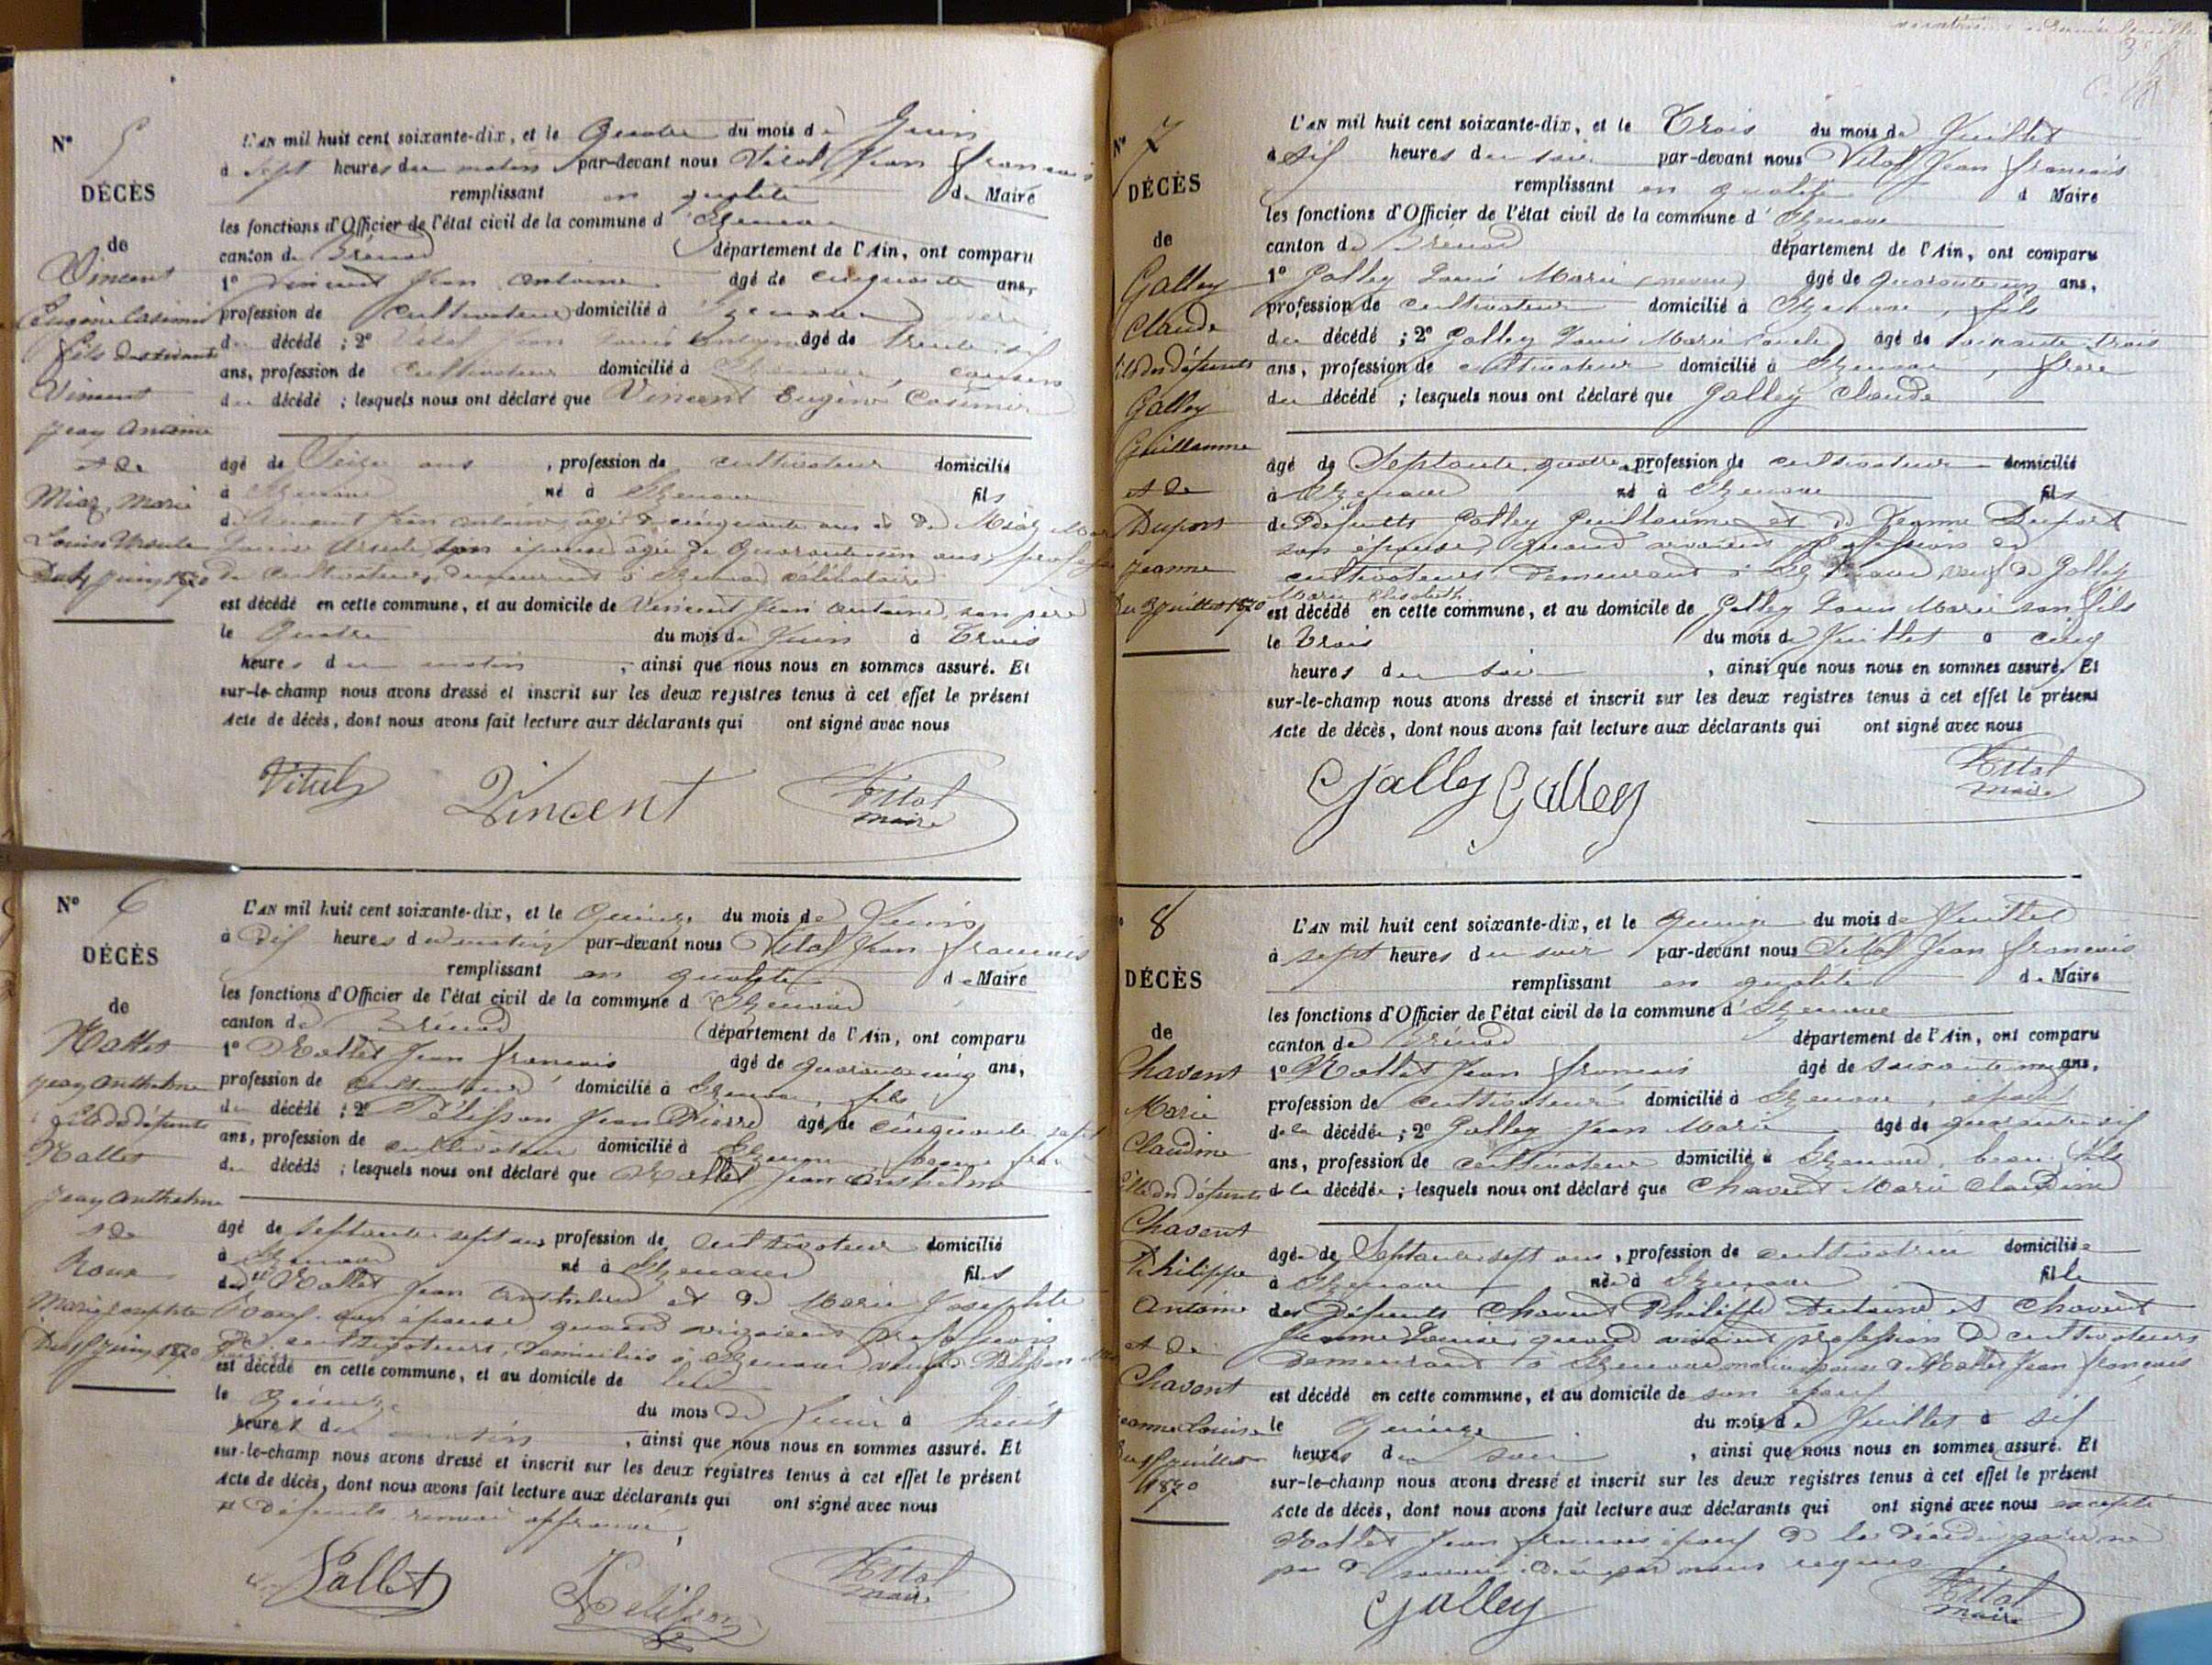 N° 5
DÉCÈS
de
Vincent
Eugène Casimir
fils des vivants
Vincent
Jean Antoine
et de
Miaz, Marie
Louise Ursule
Du 4 Juin 1870
L'AN mil huit cent soixante-dix, et le Quatre du mois de Juin
à sept heures du matin par-devant nous Vital Jean françois
remplissant en qualité de Maire
les fonctions d'Officier de l'état civil de la commune d' Izenave
canton de Brénod département de l'Ain, ont comparu
1° Vincent Jean Antoine âgé de cinquante ans,
profession de Cultivateur domicilié à Izenave père
du décédé ; 2° Vital Jean Louis âgé de trente six
ans, profession de Cultivateur domicilié à Izenave, cousin
du décédé ; lesquels nous ont déclaré que Vincent Eugène Casimir
âgé de Seize ans , profession de cultivateur domicilié
à Izenave né à Izenave fils
de Vincent Jean Antoine âgé de cinquante ans et de Miaz Marie
Louise Ursule son épouse âgée de Quarante un ans, profession
de cultivateurs, demeurant à Izenave célibataire
est décédé en cette commune, et au domicile de Vincent Jean Antoine, son père
le Quatre du mois de Juin à Trois
heures du matin , ainsi que nous nous en sommes assuré. Et
sur-le-champ nous avons dressé et inscrit sur les deux registres tenus à cet effet le présent
Acte de décès, dont nous avons fait lecture aux déclarants qui ont signé avec nous
Vital Vincent Vital
maire
N° 6
DÉCÈS
de
Rallet
Jean Anthelme
fils des défunts
Rallet
Jean Anthelme
et de
Roux
Marie Josephte
Du 15 Juin 1870
L'AN mil huit cent soixante-dix, et le Quinze du mois de Juin
à Dix heures du matin par-devant nous Vital Jean françois
remplissant en qualité de Maire
les fonctions d'Officier de l'état civil de la commune d' Izenave
canton de Brénod département de l'Ain, ont comparu
1° Rallet Jean françois âgé de quarante cinq ans,
profession de cultivateur domicilié à Izenave, fils
du décédé ; 2° Pelisson Jean Pierre âgé de cinquante sept
ans, profession de cultivateur domicilié à Izenave, beau frère
du décédé ; lesquels nous ont déclaré que Rallet Jean Anthelme
âgé de septante sept ans profession de cultivateur domicilié
à Izenave né à Izenave fils
des Rallet Jean Anthelme et de Marie Josephte
Roux son épouse quand vivaient profession
de cultivateurs, domiciliés à Izenave veuf de Pelisson
est décédé en cette commune, et au domicile de lui
le Quinze du mois de Juin à huit
heures du matin , ainsi que nous nous en sommes assuré. Et
sur-le-champ nous avons dressé et inscrit sur les deux registres tenus à cet effet le présent
Acte de décès, dont nous avons fait lecture aux déclarants qui ont signé avec nous
défunts renvoi approuvé
Rallet Pelisson Vital
maire
N° 7
DÉCÈS
de
Galley
Claude
fils des défunts
Galley
Guillaume
et de
Duport
Jeanne
Du 3 Juillet 1870
L'AN mil huit cent soixante-dix, et le Trois du mois de Juillet
à six heures du soir par-devant nous Vital Jean françois
remplissant en qualité d Maire
les fonctions d'Officier de l'état civil de la commune d' Izenave
canton de Brénod département de l'Ain, ont comparu
1° Galley Louis Marie (neveu) âgé de quarante un ans,
profession de cultivateur domicilié à Izenave, fils
du décédé ; 2° Galley Louis Marie (oncle) âgé de soixante trois
ans, profession de cultivateur domicilié à Izenave, frère
du décédé ; lesquels nous ont déclaré que Galley Claude
âgé de Septante quatre profession de cultivateur domicilié
à Izenave né à Izenave fils
de défunts Galley Guillaume et de Jeanne Duport
son épouse, quand vivaient profession de
cultivateurs demeurant à Izenave, veuf de Galley
Marie Elisabeth
est décédé en cette commune, et au domicile de Galley Louis Marie son fils
le Trois du mois de Juillet à cinq
heures du soir , ainsi que nous nous en sommes assuré. Et
sur-le-champ nous avons dressé et inscrit sur les deux registres tenus à cet effet le présent
Acte de décès, dont nous avons fait lecture aux déclarants qui ont signé avec nous
Galley Galley Vital
maire
8
DÉCÈS
de
Chavent
Marie
Claudine
fille des défunts
Chavent
Philippe
Antoine
et de
Chavent
Jeanne Louise
Du 15 Juillet
1870
L'AN mil huit cent soixante-dix, et le Quinze du mois de Juillet
à sept heures du soir par-devant nous Vital Jean françois
remplissant en qualité de Maire
les fonctions d'Officier de l'état civil de la commune d' Izenave
canton de Brénod département de l'Ain, ont comparu
1° Rallet Jean françois âgé de ans,
profession de cultivateur domicilié à Izenave, époux
de la décédée ; 2° Galley Jean Marie âgé de quarante six
ans, profession de cultivateur domicilié à Izenave, beau fils
de la décédée ; lesquels nous ont déclaré que Chavent Marie Claudine
âgée de Septante sept ans , profession de cultivatrice domiciliée
à Izenave née à Izenave fille
des défunts Chavent Philippe Antoine et Chavent
Jeanne Louise, quand vivaient profession de cultivateurs
demeurant à Izenave épouse de Rallet Jean françois
est décédé en cette commune, et au domicile de son époux
le Quinze du mois de Juillet à six
heures du soir , ainsi que nous nous en sommes assuré. Et
sur-le-champ nous avons dressé et inscrit sur les deux registres tenus à cet effet le présent
Acte de décès, dont nous avons fait lecture aux déclarants qui ont signé avec nous excepté
Rallet Jean françois époux de la décédée pour ne
pas le savoir de ce par nous requis
Galley Vital
maire